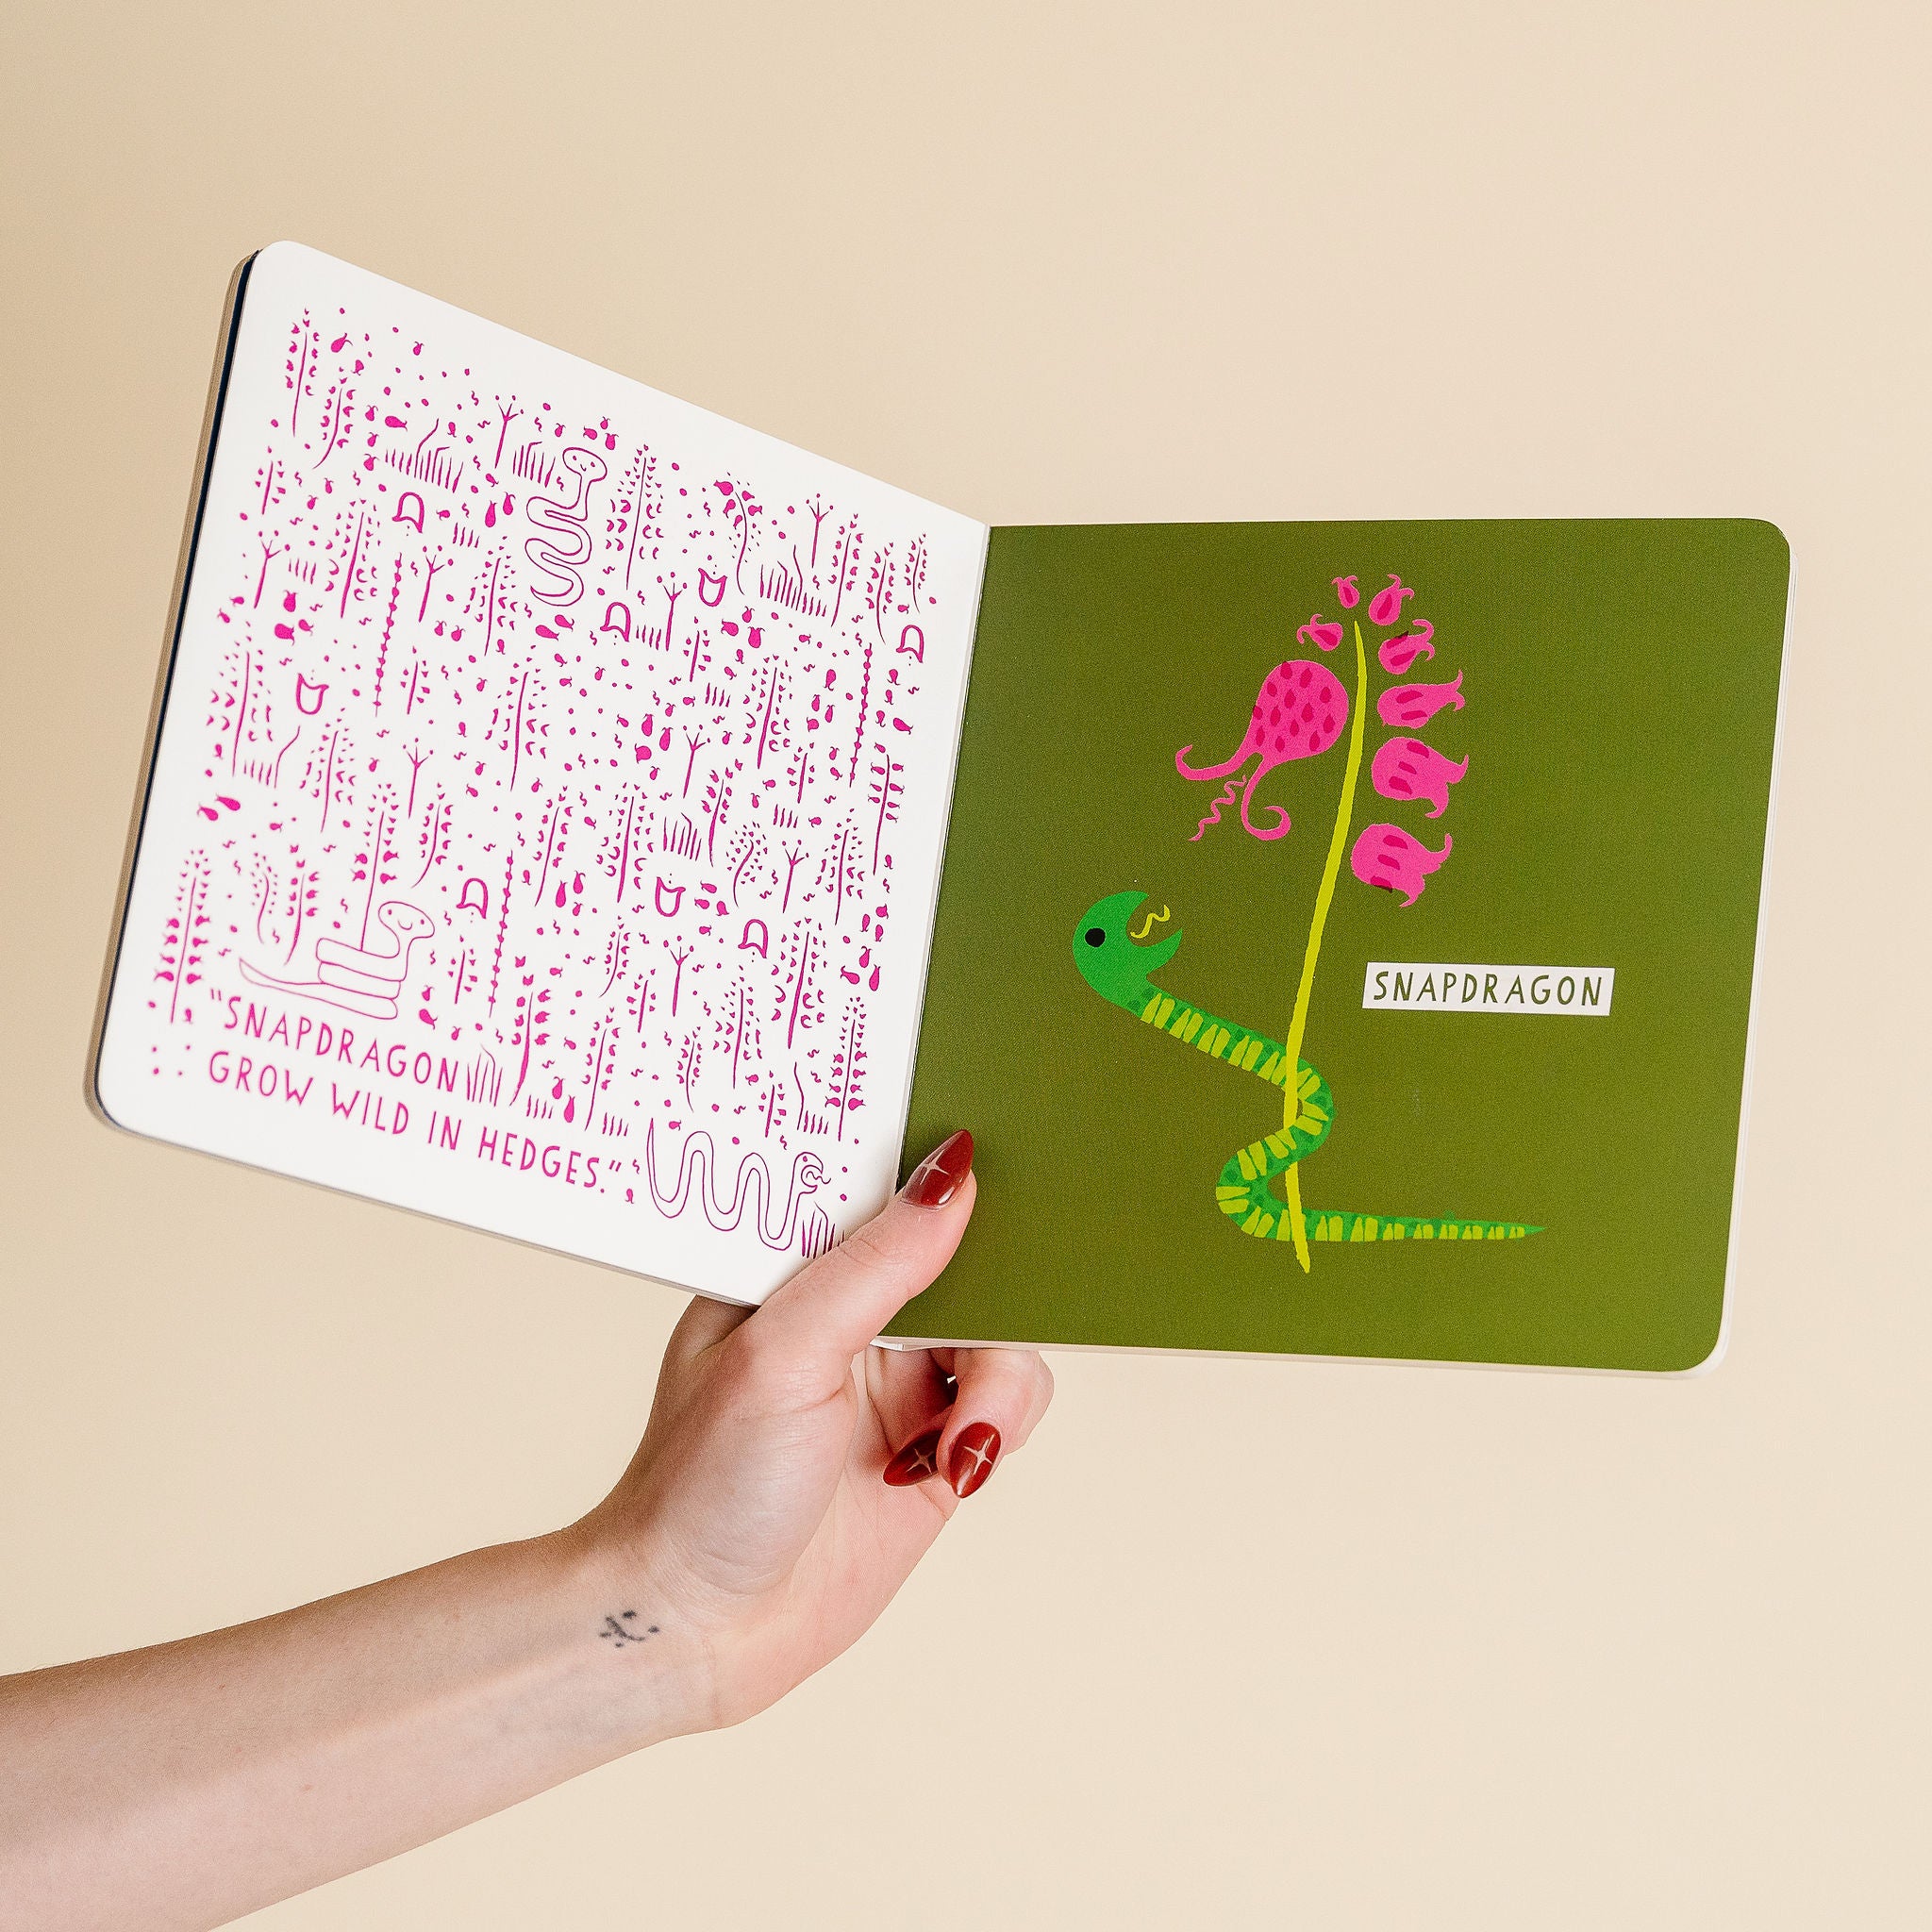 "SNAPDRAGON
GROW WILD IN HEDGES."
SNAPDRAGON